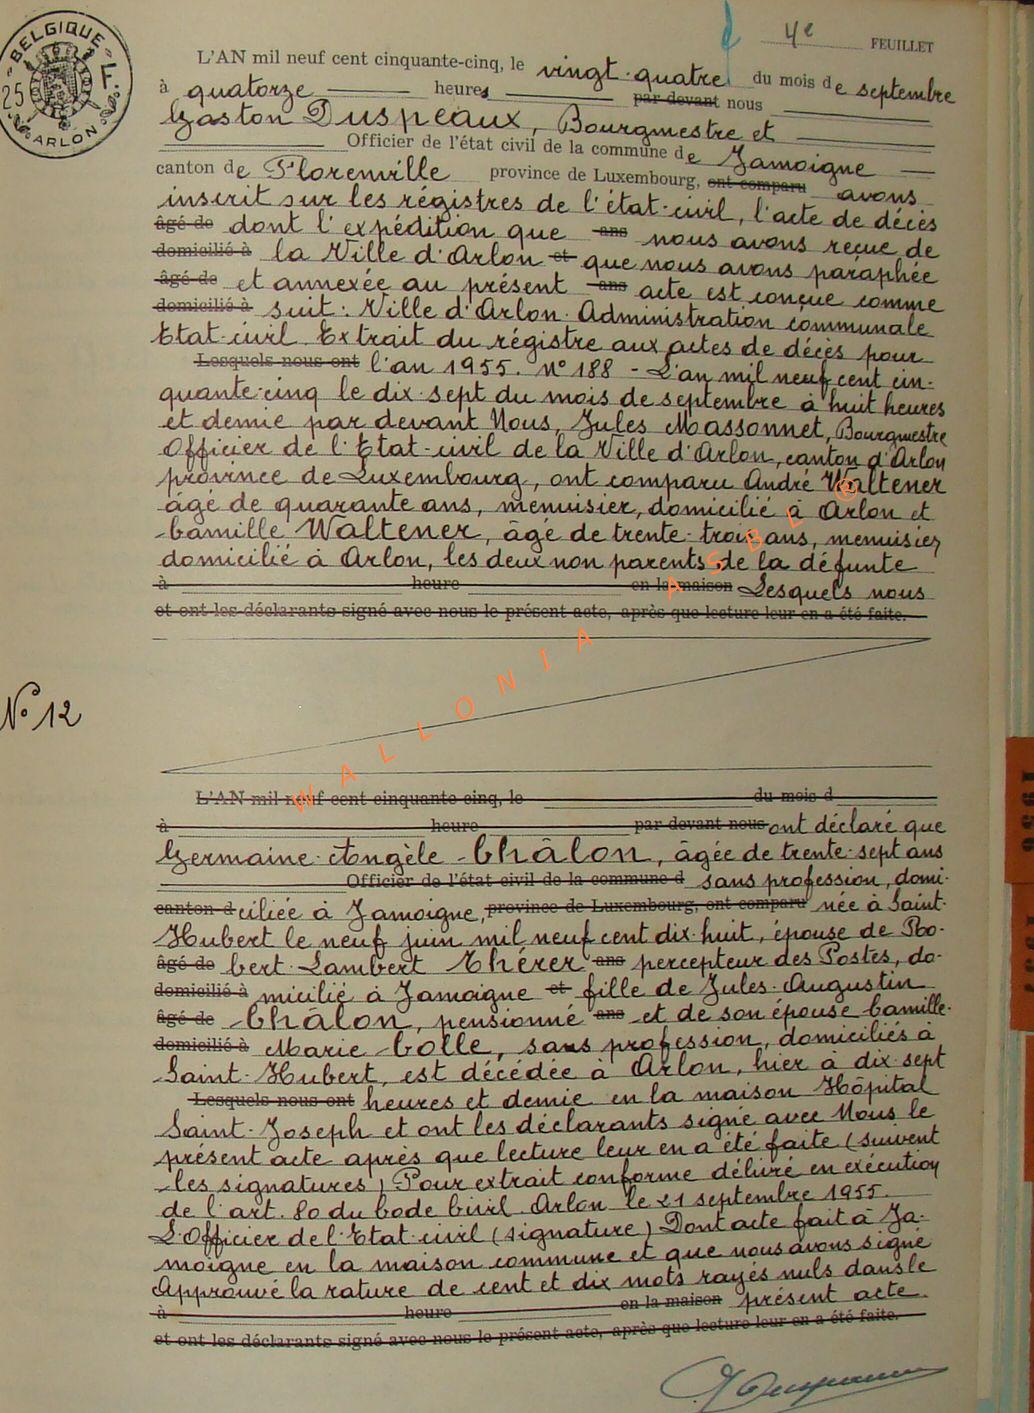 BELGIQUE
25 F.
ARLON
4e FEUILLET
L'AN mil neuf cent cinquante-cinq, le vingt-quatre du mois de septembre
à quatorze heures par devant nous
Gaston Duspeaux, Bourgmestre et
Officier de l'état civil de la commune de Jamoigne
canton de Florenville province de Luxembourg, ont comparu avons
inscrit sur les régistres de l'état-civil, l'acte de décès
âgé de dont l'expédition que ans nous avons reçue de
domicilié à la Ville d'Arlon et que nous avons paraphée
âgé de et annexée au présent ans acte est conçue comme
domicilié à suit : Ville d'Arlon. Administration communale
Etat-civil. Extrait du régistre aux actes de décès pour
Lesquels nous ont l'an 1955. N° 188 - L'an mil neuf cent cin-
quante-cinq le dix-sept du mois de septembre à huit heures
et demie par devant Nous, Jules Massonnet, Bourgmestre
Officier de l'Etat-civil de la Ville d'Arlon, canton d'Arlon
province de Luxembourg, ont comparu André Waltener
âgé de quarante ans, menuisier, domicilié à Arlon et
Camille Waltener, âgé de trente-trois ans, menuisier
domicilié à Arlon, les deux non parents de la défunte
à heure en la maison Lesquels nous
et ont les déclarants signé avec nous le présent acte, après que lecture leur en a été faite.
WALLONIA ASBL ®
N° 12
L'AN mil neuf cent cinquante-cinq, le du mois d
à heure par devant nous ont déclaré que
Germaine-Angèle Châlon, âgée de trente-sept ans
Officier de l'état civil de la commune d sans profession, domi-
canton d ciliée à Jamoigne, province de Luxembourg, ont comparu née à Saint-
Hubert le neuf juin mil neuf cent dix-huit, épouse de Ro-
âgé de bert-Lambert Thérer ans percepteur des Postes, do-
domicilié à micilié à Jamoigne et fille de Jules-Augustin
âgé de Châlon, pensionné ans et de son épouse Camille-
domicilié à Marie Colle, sans profession, domiciliés à
Saint-Hubert, est décédée à Arlon, hier à dix-sept
Lesquels nous ont heures et demie en la maison Hôpital
Saint-Joseph et ont les déclarants signé avec Nous le
présent acte après que lecture leur en a été faite (suivent
les signatures) Pour extrait conforme délivré en exécution
de l'art. 80 du Code Civil. Arlon le 21 septembre 1955.
L'Officier de l'Etat-civil (signature) Dont acte fait à Ja-
moigne en la maison commune et que nous avons signé
Approuvé la rature de cent et dix mots rayés nuls dans le
à heure en la maison présent acte.
et ont les déclarants signé avec nous le présent acte, après que lecture leur en a été faite.